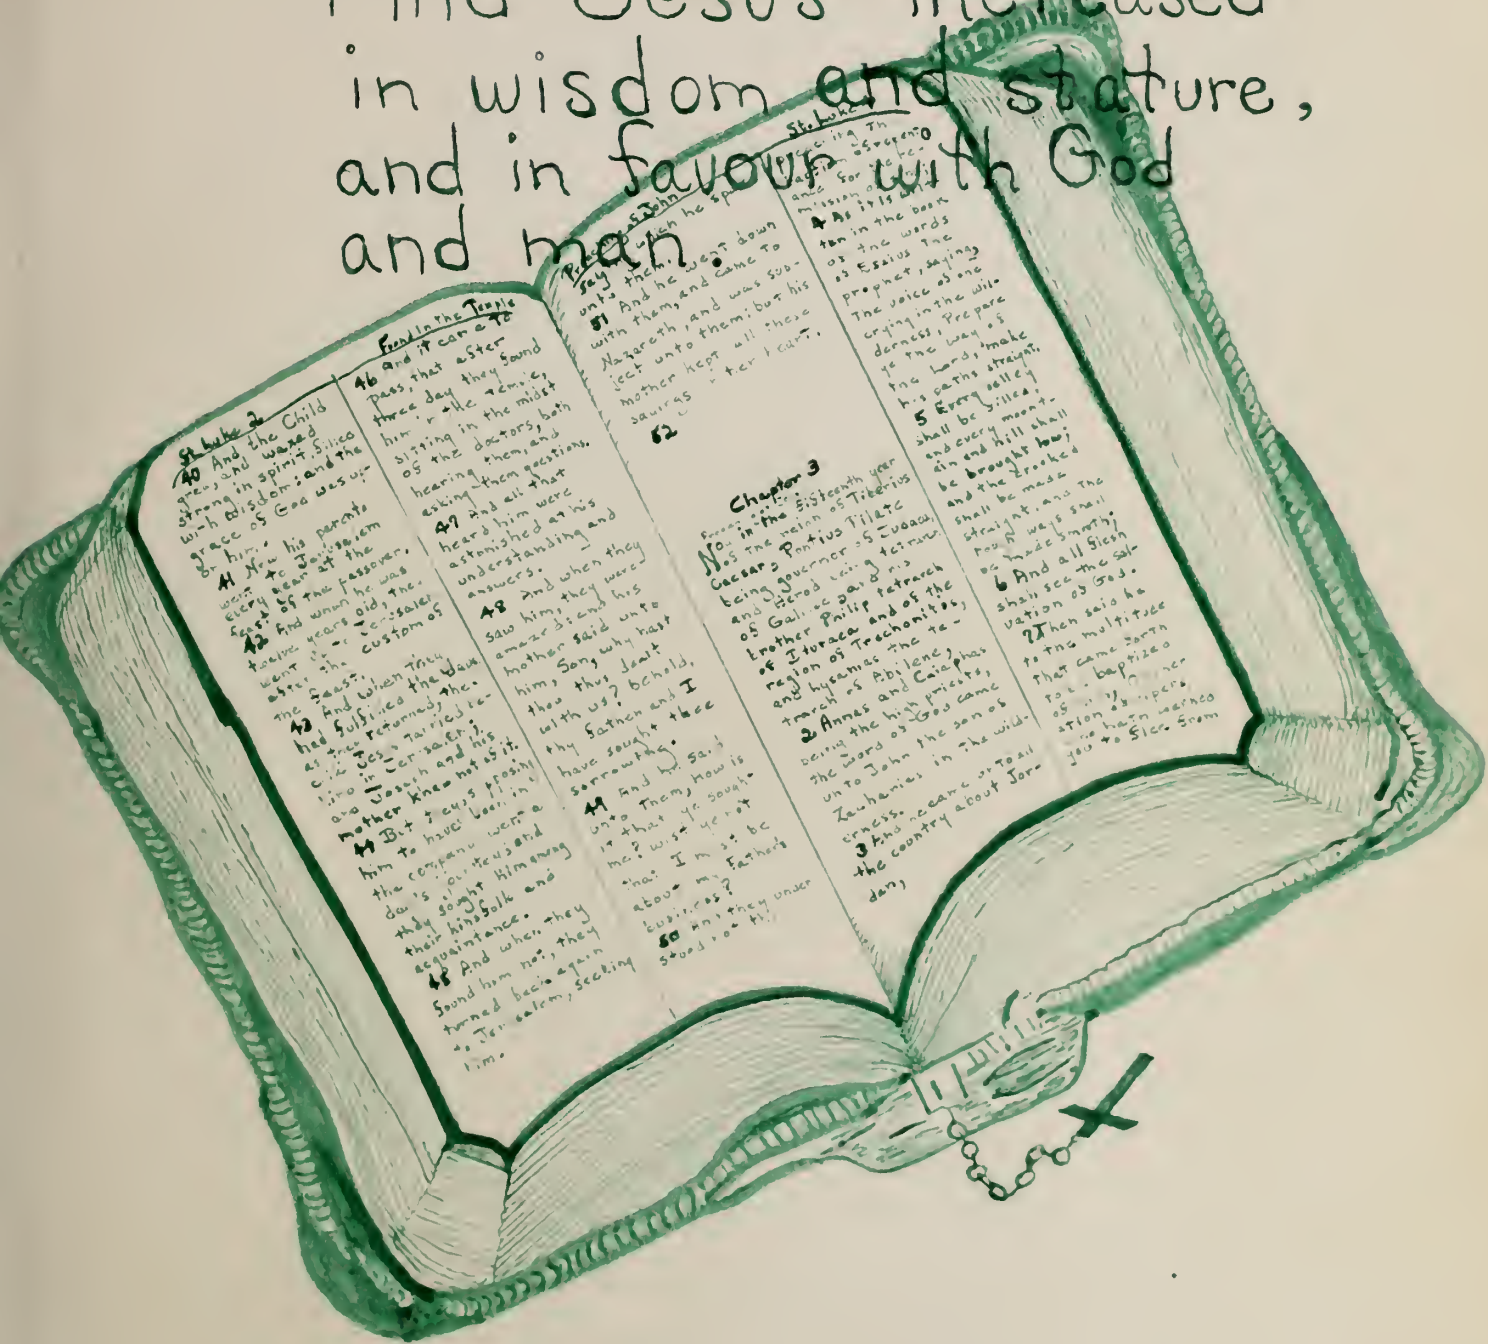 And Jesus increased
in wisdom and stature,
and in favour with God
and man.
St. Luke 2
40 And the Child
grew, and waxed
strong in spirit, filled
with wisdom: and the
grace of God was up-
on him.
41 Now his parents
went to Jerusalem
every year at the
feast of the passover.
42 And when he was
twelve years old, they
went Jerusalem
after the custom of
the feast.
43 And when they
had fulfilled the days
as they returned, the
child Jesus tarried be-
hind in Jerusalem;
and Joseph and his
mother knew not of it.
44 But they, supposing
him to have been in
the company went a
day's journey; and
they sought him among
their kinsfolk and
acquaintance.
45 And when they
found him not, they
turned back again
to Jerusalem, seeking
him.
Found in the Temple
46 And it came to
pass, that after
three day they found
him in the temple,
sitting in the midst
of the doctors, both
hearing them, and
asking them questions.
47 And all that
heard him were
astonished at his
understanding and
answers.
48 And when they
saw him, they were
amazed: and his
mother said unto
him, Son, why hast
thou thus dealt
with us? behold,
thy father and I
have sought thee
sorrowing.
49 And he said
unto them, How is
it that ye sought
me? wist ye not
that I must be
about my Father's
business?
50 And they under
stood not the
John
say which he sp
unto them.
51 And he went down
with them, and came to
Nazareth, and was sub-
ject unto them: but his
mother kept all these
sayings her heart.
52
Chapter 3
Now in the fifteenth year
of the reign of Tiberius
Caesar, Pontius Pilate
being governor of Judaea,
and Herod being tetrarch
of Galilee and his
brother Philip tetrarch
of Ituraea and of the
region of Trachonitis,
and Lysanias the te-
trarch of Abilene,
2 Annas and Caiaphas
being the high priests,
the word of God came
unto John the son of
Zacharias in the wild-
erness.
3 And he came unto all
the country about Jor-
dan,
St. Luke
mission of
4 As it is writ-
ten in the book
of the words
of Esaius the
prophet, saying,
The voice of one
crying in the wil-
derness, Prepare
ye the way of
the Lord, make
his paths straight.
5 Every valley
shall be filled,
and every mount-
ain and hill shall
be brought low;
and the crooked
shall be made
straight, and the
rough ways shall
be made smooth;
6 And all flesh
shall see the sal-
vation of God.
7 Then said he
to the multitude
that came forth
to be baptized
of
ation of vipers,
who hath warned
you to flee from